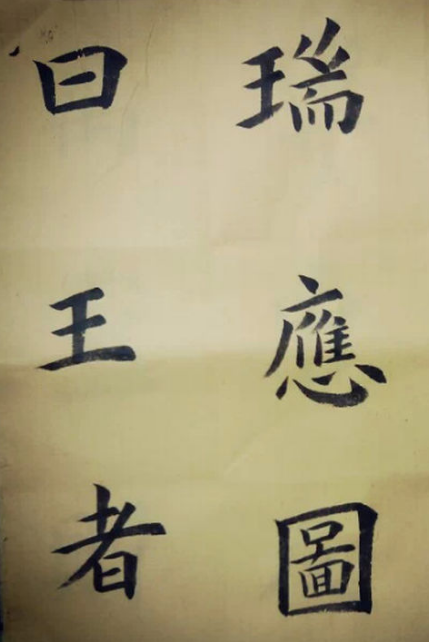 瑞應圖
曰王者